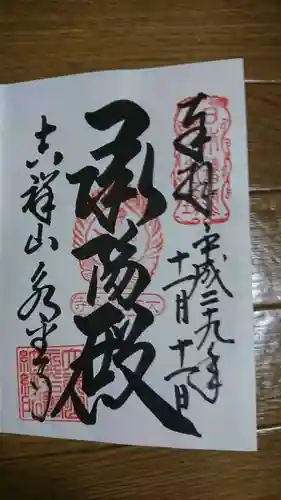 奉拝
平成二十九年
十一月十一日
承陽殿
吉祥山永平寺